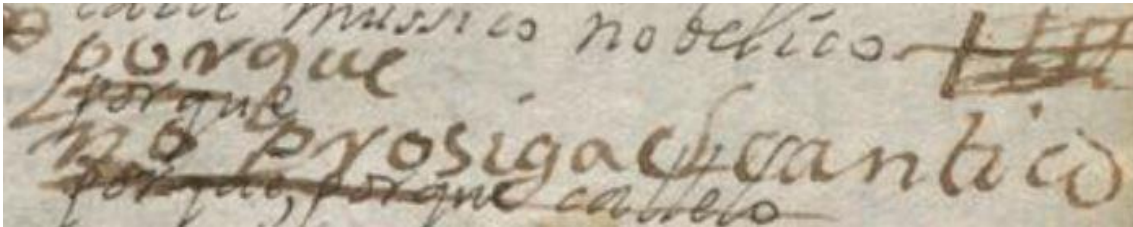 cada mussico nobelico
porque
porque
no prosiga el cantico
porque, porque